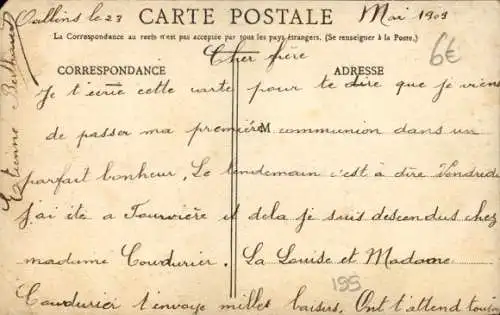 Oullins le 23 Mai 1909
CARTE POSTALE
La Correspondance au recto n'est pas acceptée par tous les pays étrangers. (Se renseigner à la Poste.)
6€
Cher frère
CORRESPONDANCE
ADRESSE
Je t'écrie cette carte pour te dire que je viens
de passer ma première communion dans un
M
parfait bonheur. Le lendemain c'est à dire Vendredi
j'ai été a Fourvière et dela je suis descendus chez
madame Coudurier. La Louise et Madame
155
Coudurier t'envoye milles baisers. Ont t'attend toujou
Etienne Berthaud